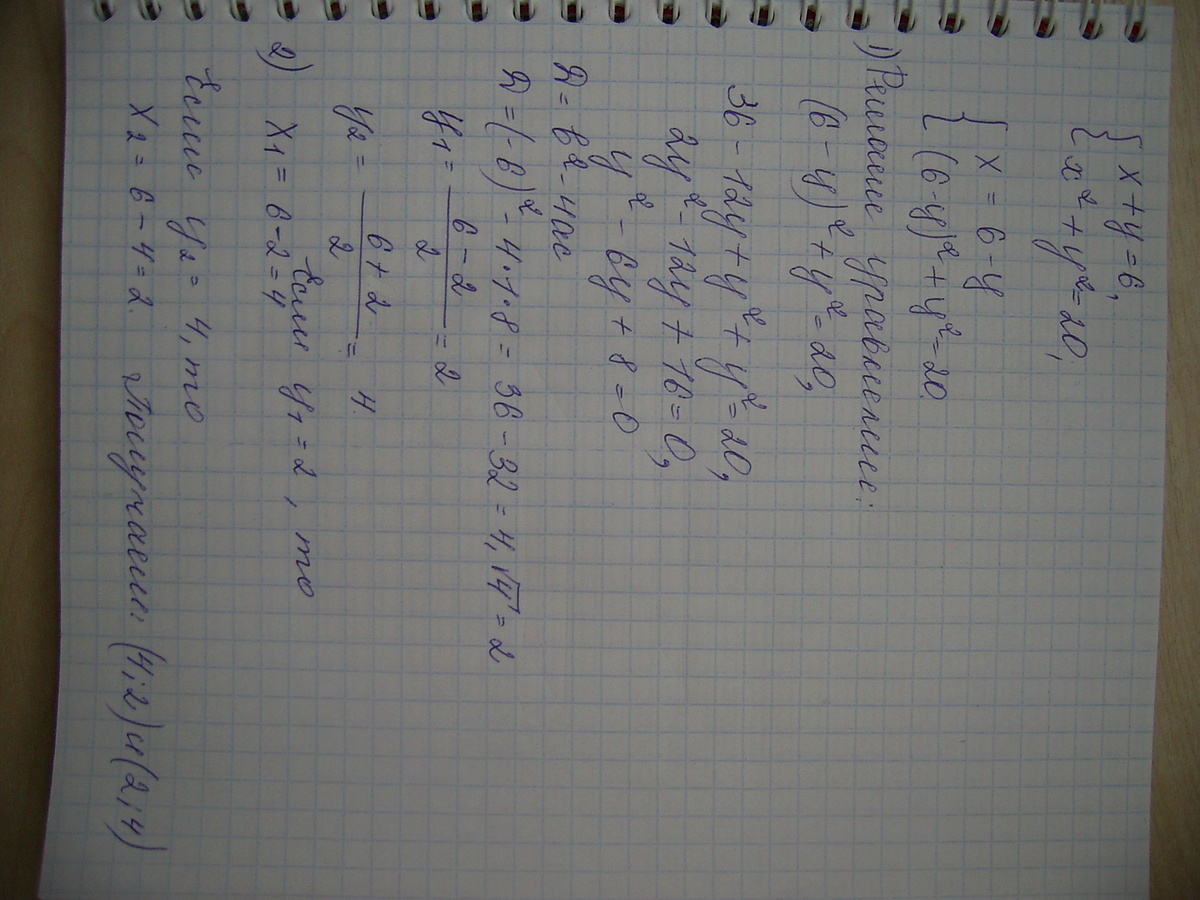 { x + y = 6,
x² + y² = 20,
{ x = 6 - y
(6 - y)² + y² = 20.
1) Решаем уравнение:
(6 - y)² + y² = 20,
36 - 12y + y² + y² = 20,
2y² - 12y + 16 = 0,
y² - 6y + 8 = 0
D = b² - 4ac
D = (-6)² - 4·1·8 = 36 - 32 = 4, √4 = 2
y₁ = (6 - 2)/2 = 2
y₂ = (6 + 2)/2 = 4.
2) Если y₁ = 2, то
x₁ = 6 - 2 = 4
Если y₂ = 4, то
x₂ = 6 - 4 = 2. Получаем: (4; 2) и (2; 4)